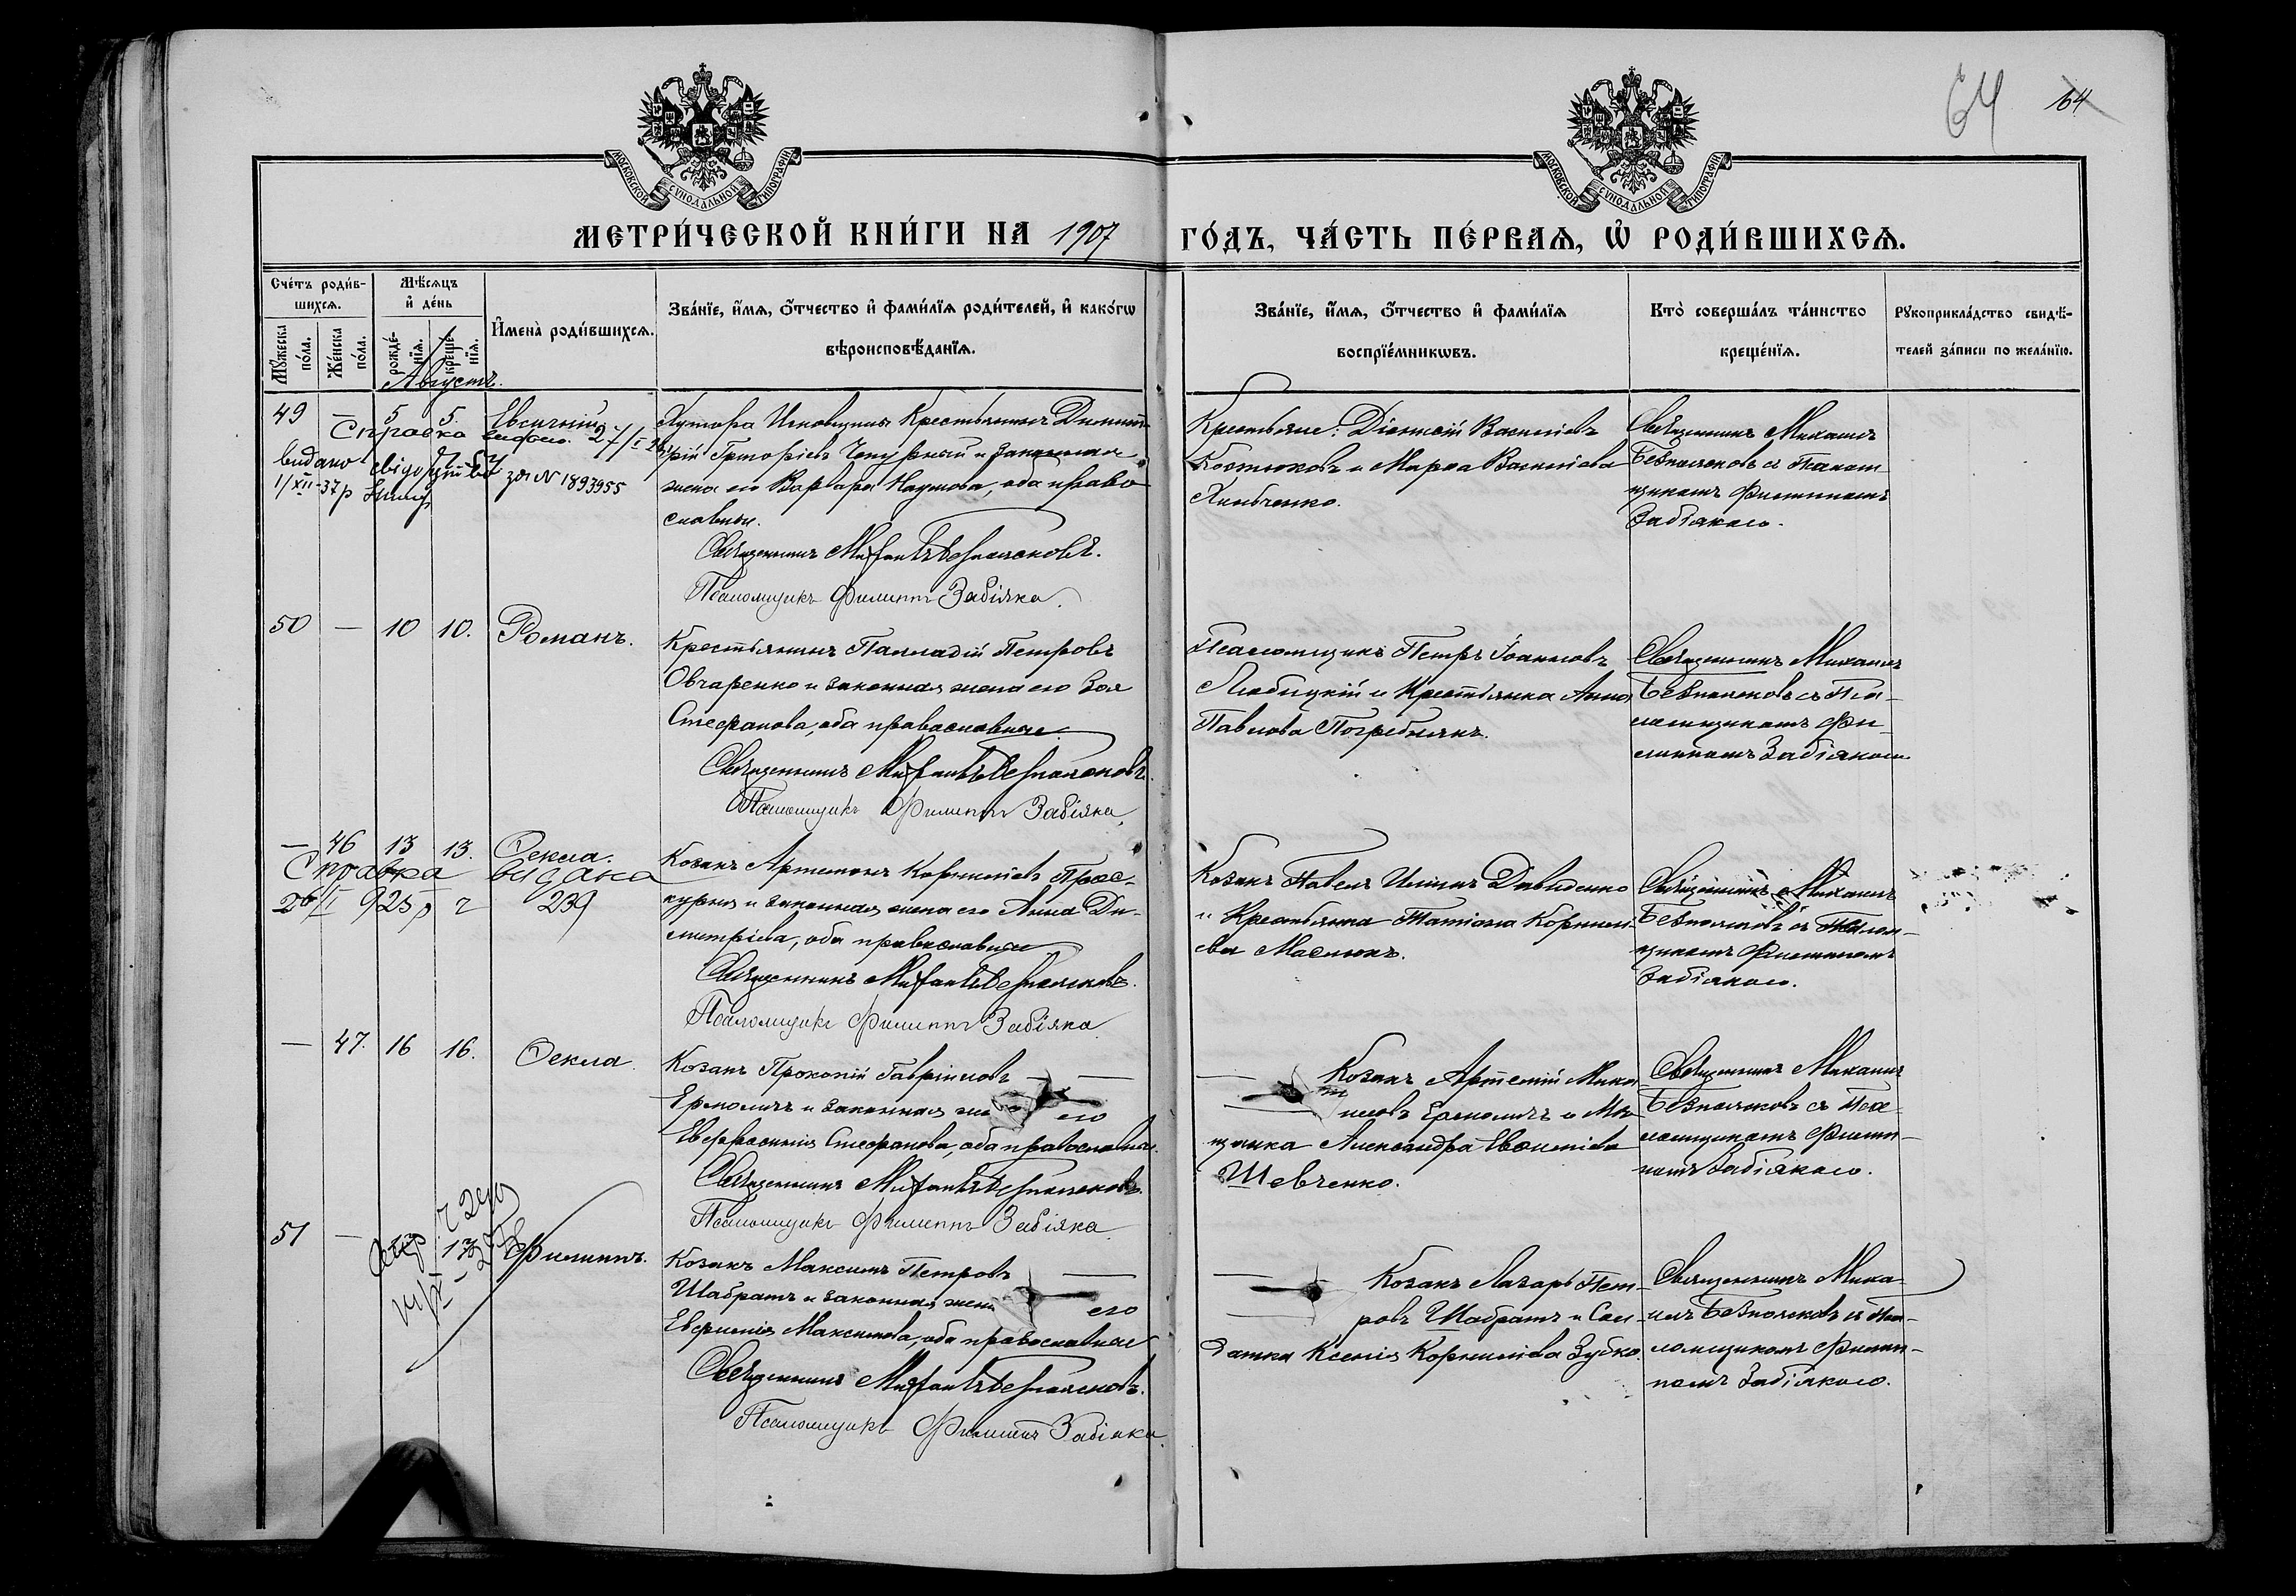 64 64
МОСКОВСКОЙ СѴНОДАЛЬНОЙ ТИПОГРАФІИ
МОСКОВСКОЙ СѴНОДАЛЬНОЙ ТИПОГРАФІИ
МЕТРИ́ЧЕСКОЙ КНИ́ГИ НА 1907
ГО́ДЪ, ЧА́СТЬ ПЕ́РВАѦ, Ѡ҆ РОДИ́ВШИХСѦ.
Сче́тъ роди́в-
шихсѧ.
Мѣ́сѧцъ
и҆ де́нь
Мꙋ́жеска
по́ла.
Же́нска
по́ла.
рожде́-
нїѧ.
креще́-
нїѧ.
И҆мена̀ роди́вшихсѧ.
Зва́нїе, и҆́мѧ, ѻ҆́тчество и҆ фами́лїѧ роди́телей, и҆ како́гѡ
вѣроисповѣ́данїѧ.
Зва́нїе, и҆́мѧ, ѻ҆́тчество и҆ фами́лїѧ
воспрїе́мникѡвъ.
Кто̀ соверша́лъ та́инство
креще́нїѧ.
Рꙋкоприкла́дство свидѣ́-
телей за́писи по жела́нїю.
Августъ.
49 — 5 5.
Справка 27/I
видано свідоцтво за N 1893955
1/XII-37р
Хутора Крестьянинъ Димит-
рій Григоріевъ и законная
жена его Варвара Наумова, оба право-
славные.
Священникъ Михаилъ Безпалековъ.
Псаломщикъ Филиппъ Забіяка.
Крестьяне: Діонисій Василіевъ
Костюковъ и Марѳа Василіева
Священникъ Михаилъ
Безпалековъ съ Псалом-
щикомъ Филиппомъ
Забіякою.
50 — 10 10. Романъ.
Крестьянинъ Палладій Петровъ
Овчаренко и законная жена его Зоя
Стефанова, оба православные
Священникъ Михаилъ Безпалековъ.
Псаломщикъ Филиппъ Забіяка.
Псаломщикъ Петръ Іоанновъ
Любицкій и Крестьянка Анна
Павлова Погребнякъ.
Священникъ Михаилъ
Безпалековъ съ Пса-
ломщикомъ Фи-
липпомъ Забіякою
— 46 13 13. Ѳекла.
Справка видана
26/I 925 р 239
Козакъ Артемонъ Корниліевъ Прос-
курня и законная жена его Анна Ди-
митріева, оба православные
Священникъ Михаилъ Безпалековъ.
Псаломщикъ Филиппъ Забіяка
Козакъ Павелъ Давиденко
и Крестьянка Татіана Корнилі-
ева Маслюкъ.
Священникъ Михаилъ
Безпалековъ съ Псалом-
щикомъ Филиппомъ
Забіякою.
— 47. 16 16. Ѳекла
Козакъ Прокопій Гавріиловъ
Ермоличъ и законная жена его
Евфросинія Стефанова, оба православные.
Священникъ Михаилъ Безпалековъ.
Псаломщикъ Филиппъ Забіяка.
Козакъ Артемій
Ермоличъ и Мѣ-
щанка Александра
Шевченко.
Священникъ Михаилъ
Безпалековъ съ Пса-
ломщикомъ Филип-
помъ Забіякою.
51 — 17 Филиппъ.
Козакъ Максимъ Петровъ
Шабратъ и законная жена его
Евфимія Максимова, оба православные
Священникъ Михаилъ Безпалековъ.
Псаломщикъ Филиппъ Забіяка.
Козакъ Лазарь Пет-
ровъ Шабратъ и Сол-
датка Ксенія Корниліева Зубко.
Священникъ Миха-
илъ Безпалековъ съ Пса-
ломщикомъ Филип-
помъ Забіякою.